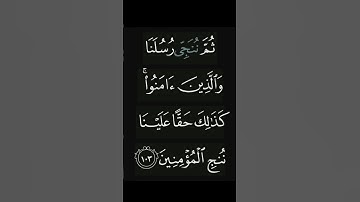 ثُمَّ نُنَجِّى رُسُلَنَا
وَٱلَّذِينَ ءَامَنُوا۟ ۚ
كَذَٰلِكَ حَقًّا عَلَيْنَا
نُنجِ ٱلْمُؤْمِنِينَ ١٠٣